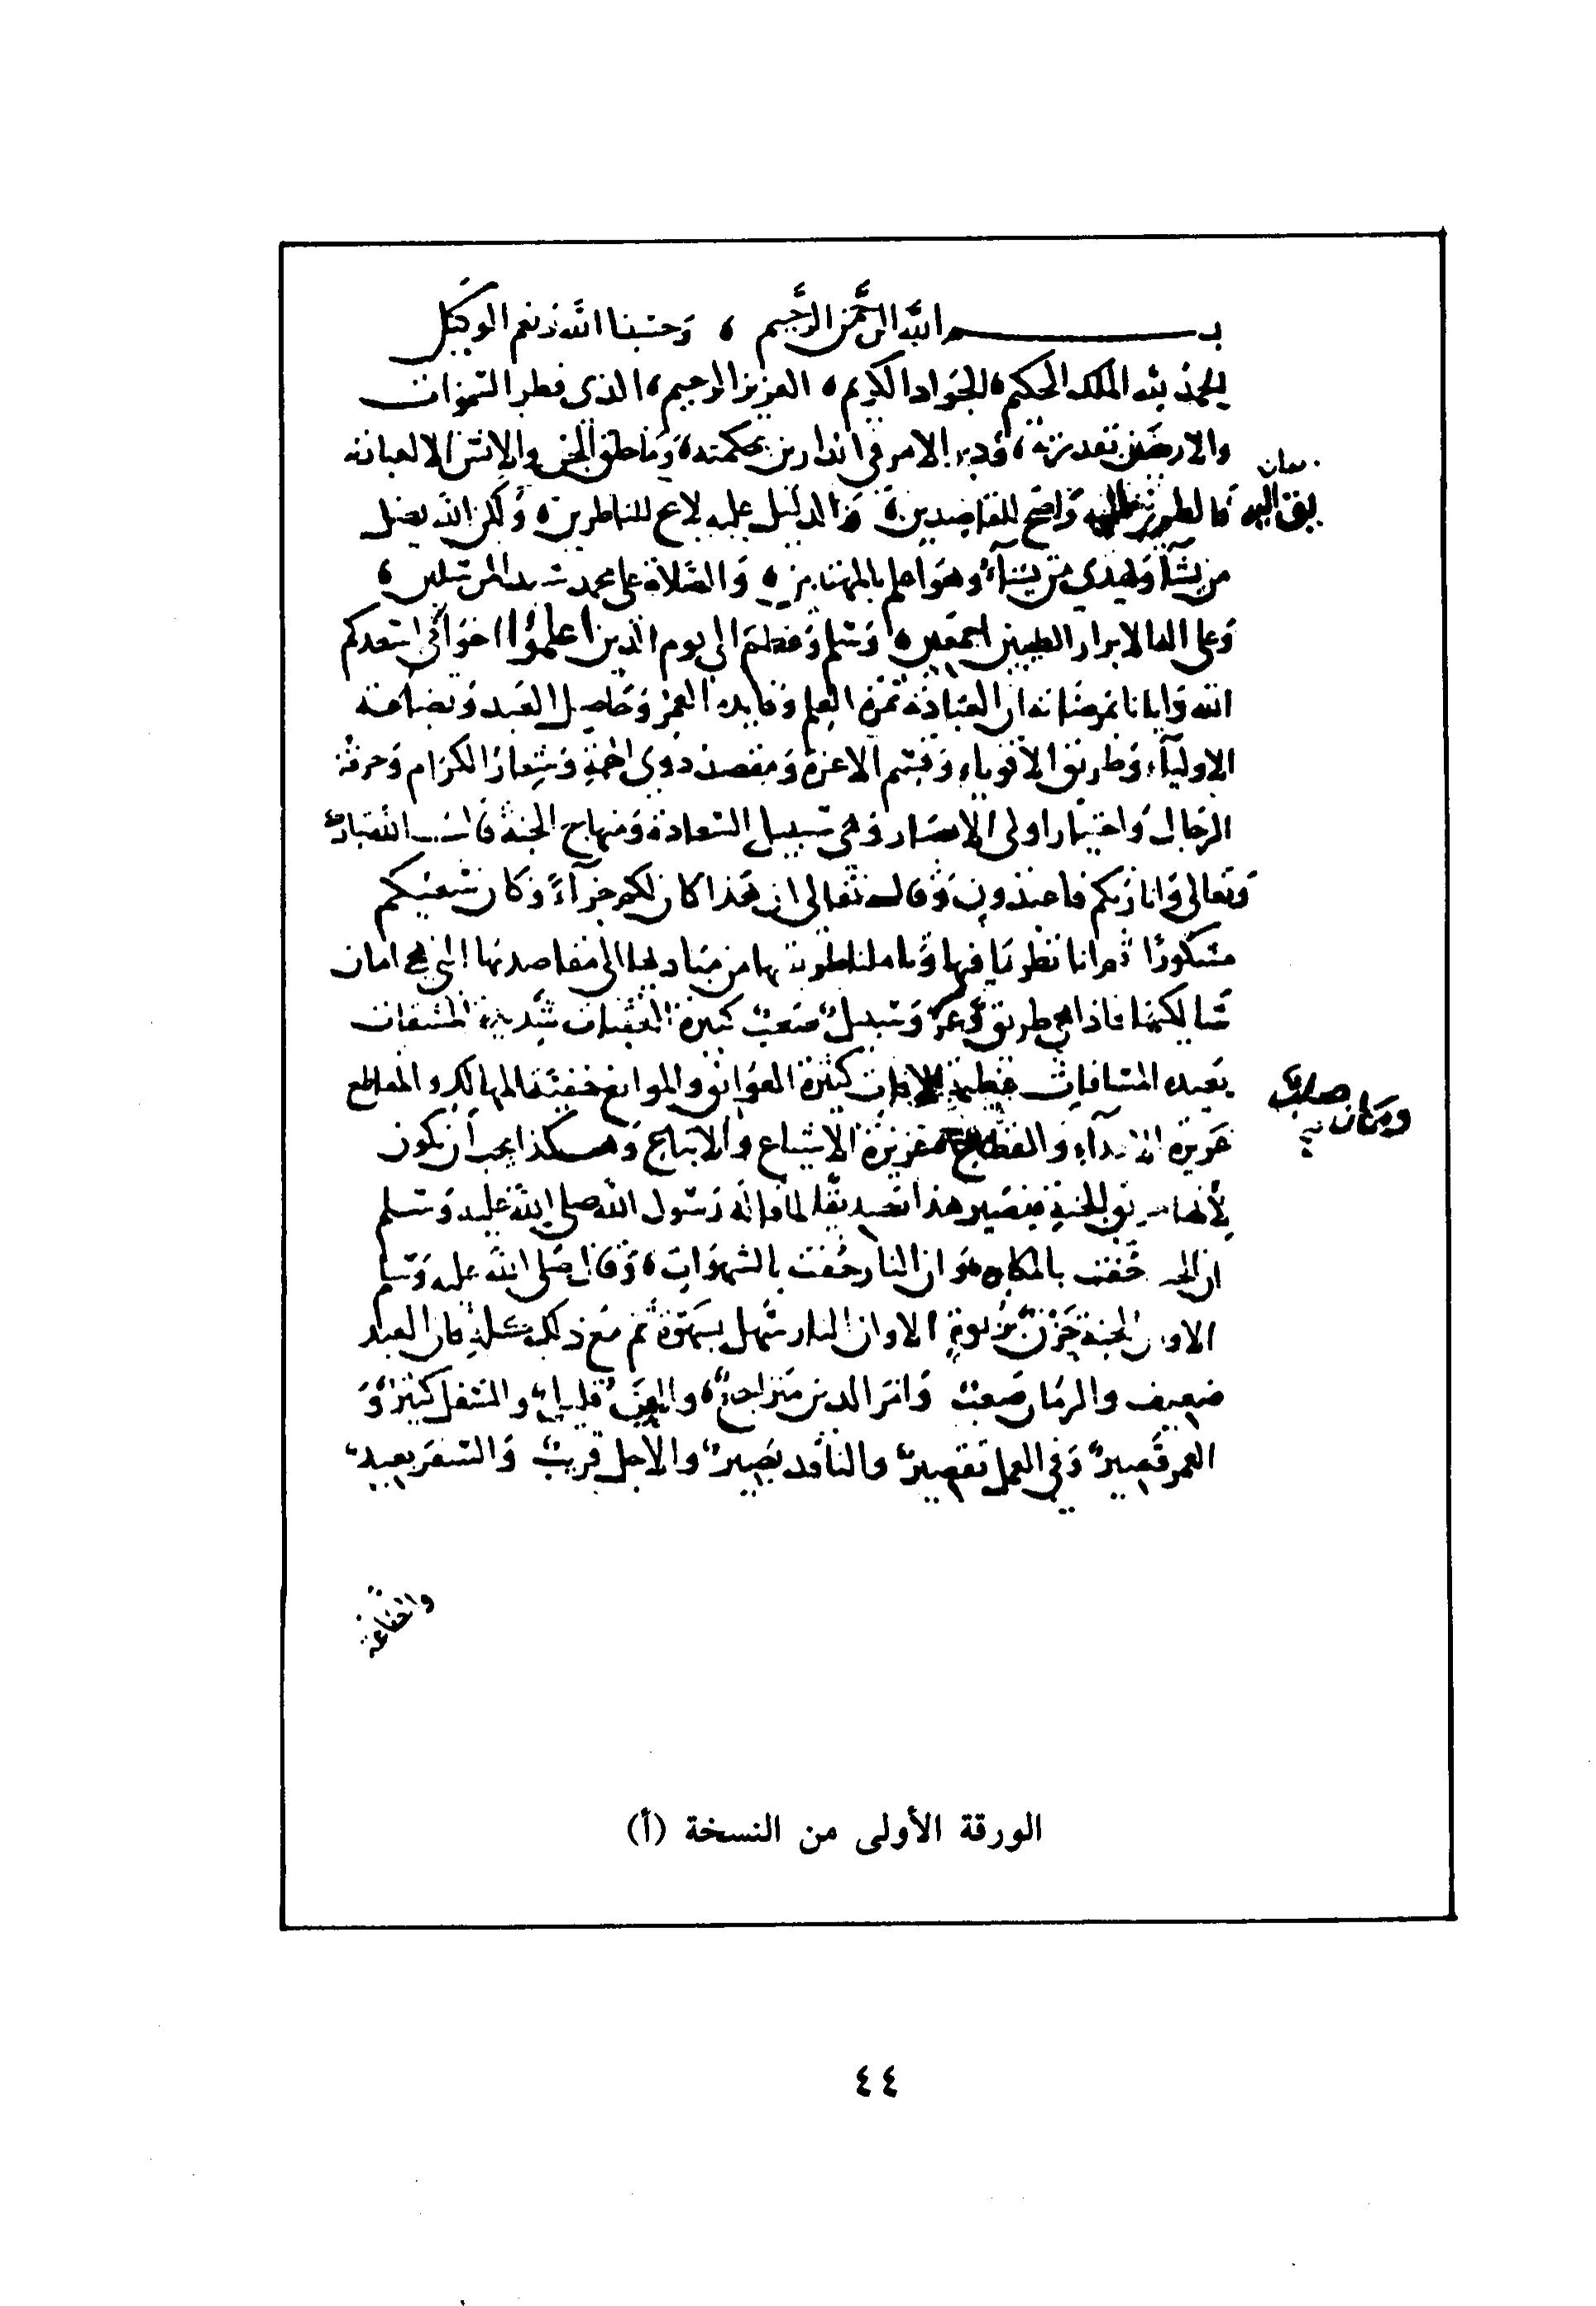 بسم الله الرحمن الرحيم ، وحسبنا الله ونعم الوكيل
الحمد لله الملك الحكيم ، الجواد الكريم ، العزيز الرحيم ، الذي فطر السموات
والارضين بقدرته ، ودبر الامر في الدارين بحكمته ، وما خلق الجن والانس الا لعبادته
فالطريق اليه واضح للقاصدين ، والدليل عليه لايح للناظرين ، ولكن الله يضل
من يشآء ويهدي من يشآء وهو اعلم بالمهتدين ، والصلاة على محمد سيد المرسلين ،
وعلى اله الابرار الطيبين اجمعين ، وسلم وعظم الى يوم الدين اعلموا اخواني اسعدكم
الله وايانا بمرضاته ان العبادة ثمرة العلم وفايده العمر وحاصل العبد وبضاعة
الاوليآء وطريق الاقوياء وقسم الاعزة ومقصد ذوي الهمة وشعار الكرام وحرفة
الرجال واختيار اولى الابصار وهي سبيل السعادة ومنهاج الجنة قال الله تبارك
وتعالى وانا ربكم فاعبدون وقال تعالى ان هذا كان لكم جزآء وكان سعيكم
مشكورا ثم انا نظرنا فيها وتاملنا طريقها من مباديها الى مقاصدها التي هي امان
سالكيها فاذا هي طريق وعر وسبيل صعب كثيرة العقبات شديدة المشقات
بعيده المسافات عظيمة الافات كثيرة العوايق والموانع خفية المهالك والمقاطع
غزيرة الاعدآء والقطاع عزيزة الاشياع والاتباع وهكذا يجب ان تكون
لانها طريق الجنة فيصير هذا تصديقا لما قاله رسول الله صلى الله عليه وسلم
ان الجنة حفت بالمكاره وان النار حفت بالشهوات ، وقال صلى الله عليه وسلم
الا وان الجنة حزن بربوة الا وان النار سهل بسهوة ثم مع ذلك كله فان العبد
ضعيف والزمان صعب وامر الدين متراجع ، والفراغ قليل والشغل كثير و
العمر قصير وفي العمل تقصير والناقد بصير والاجل قريب والسفر بعيد
والطاعة
الورقة الأولى من النسخة (أ)
٤٤